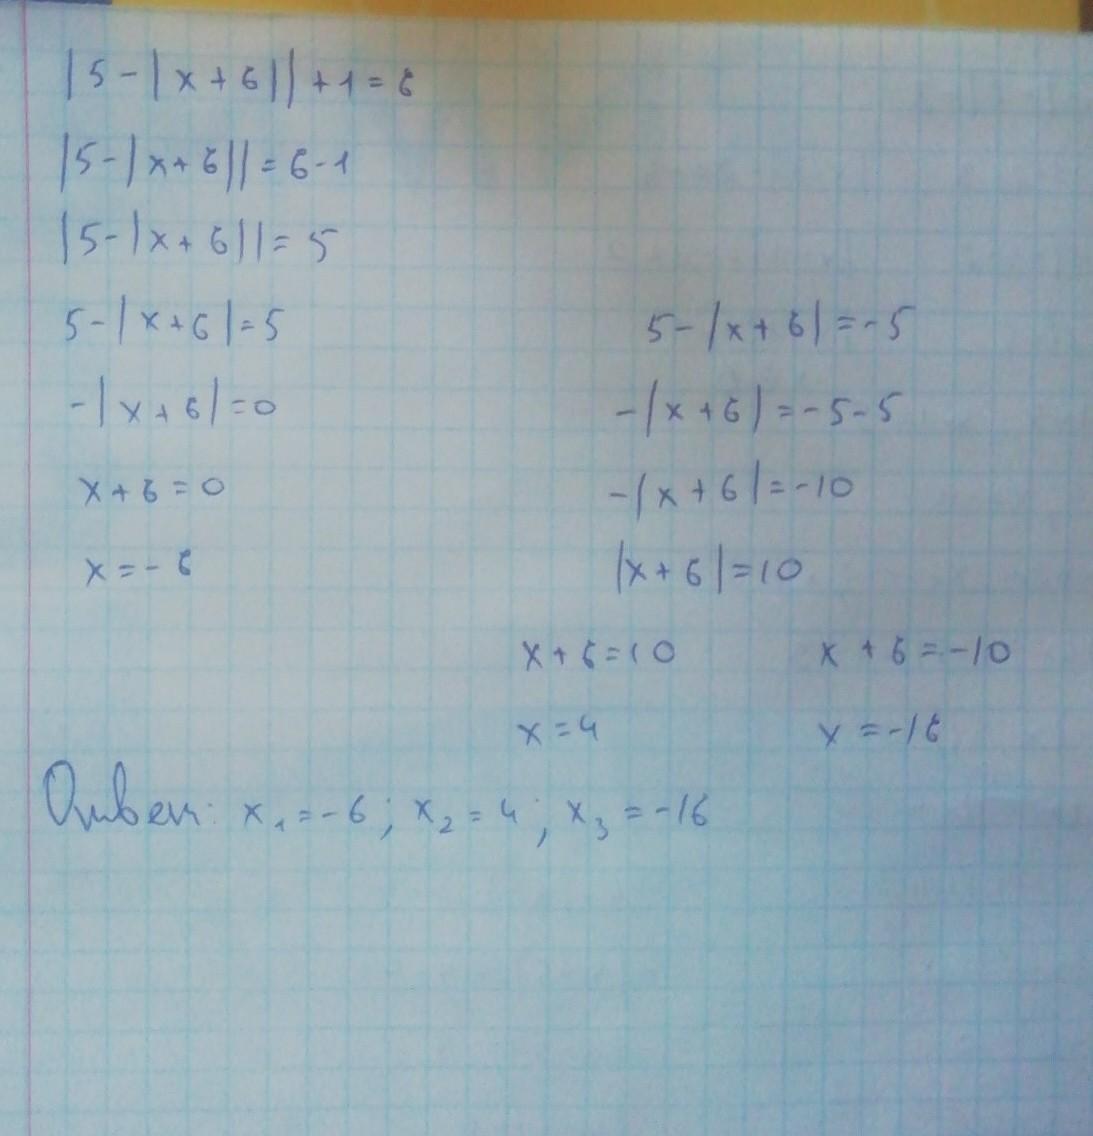 |5-|x+6||+1=6
|5-|x+6||=6-1
|5-|x+6||=5
5-|x+6|=5
-|x+6|=0
x+6=0
x=-6
5-|x+6|=-5
-|x+6|=-5-5
-|x+6|=-10
|x+6|=10
x+6=10
x=4
x+6=-10
x=-16
Ответ: x₁=-6; x₂=4; x₃=-16